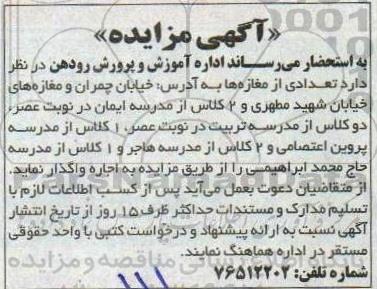 «آگهی مزایده»
به استحضار می‌رساند اداره آموزش و پرورش رودهن در نظر
دارد تعدادی از مغازه‌ها به آدرس: خیابان چمران و مغازه‌های
خیابان شهید مطهری و ۲ کلاس از مدرسه ایمان در نوبت عصر،
دو کلاس از مدرسه تربیت در نوبت عصر، ۱ کلاس از مدرسه
پروین اعتصامی و ۲ کلاس از مدرسه هاجر و ۱ کلاس از مدرسه
حاج محمد ابراهیمی را از طریق مزایده به اجاره واگذار نماید.
از متقاضیان دعوت بعمل می‌آید پس از کسب اطلاعات لازم با
تسلیم مدارک و مستندات حداکثر ظرف ۱۵ روز از تاریخ انتشار
آگهی نسبت به ارائه پیشنهاد و درخواست کتبی با واحد حقوقی
مستقر در اداره هماهنگ نمایند.
شماره تلفن: ۷۶۵۱۲۲۰۲